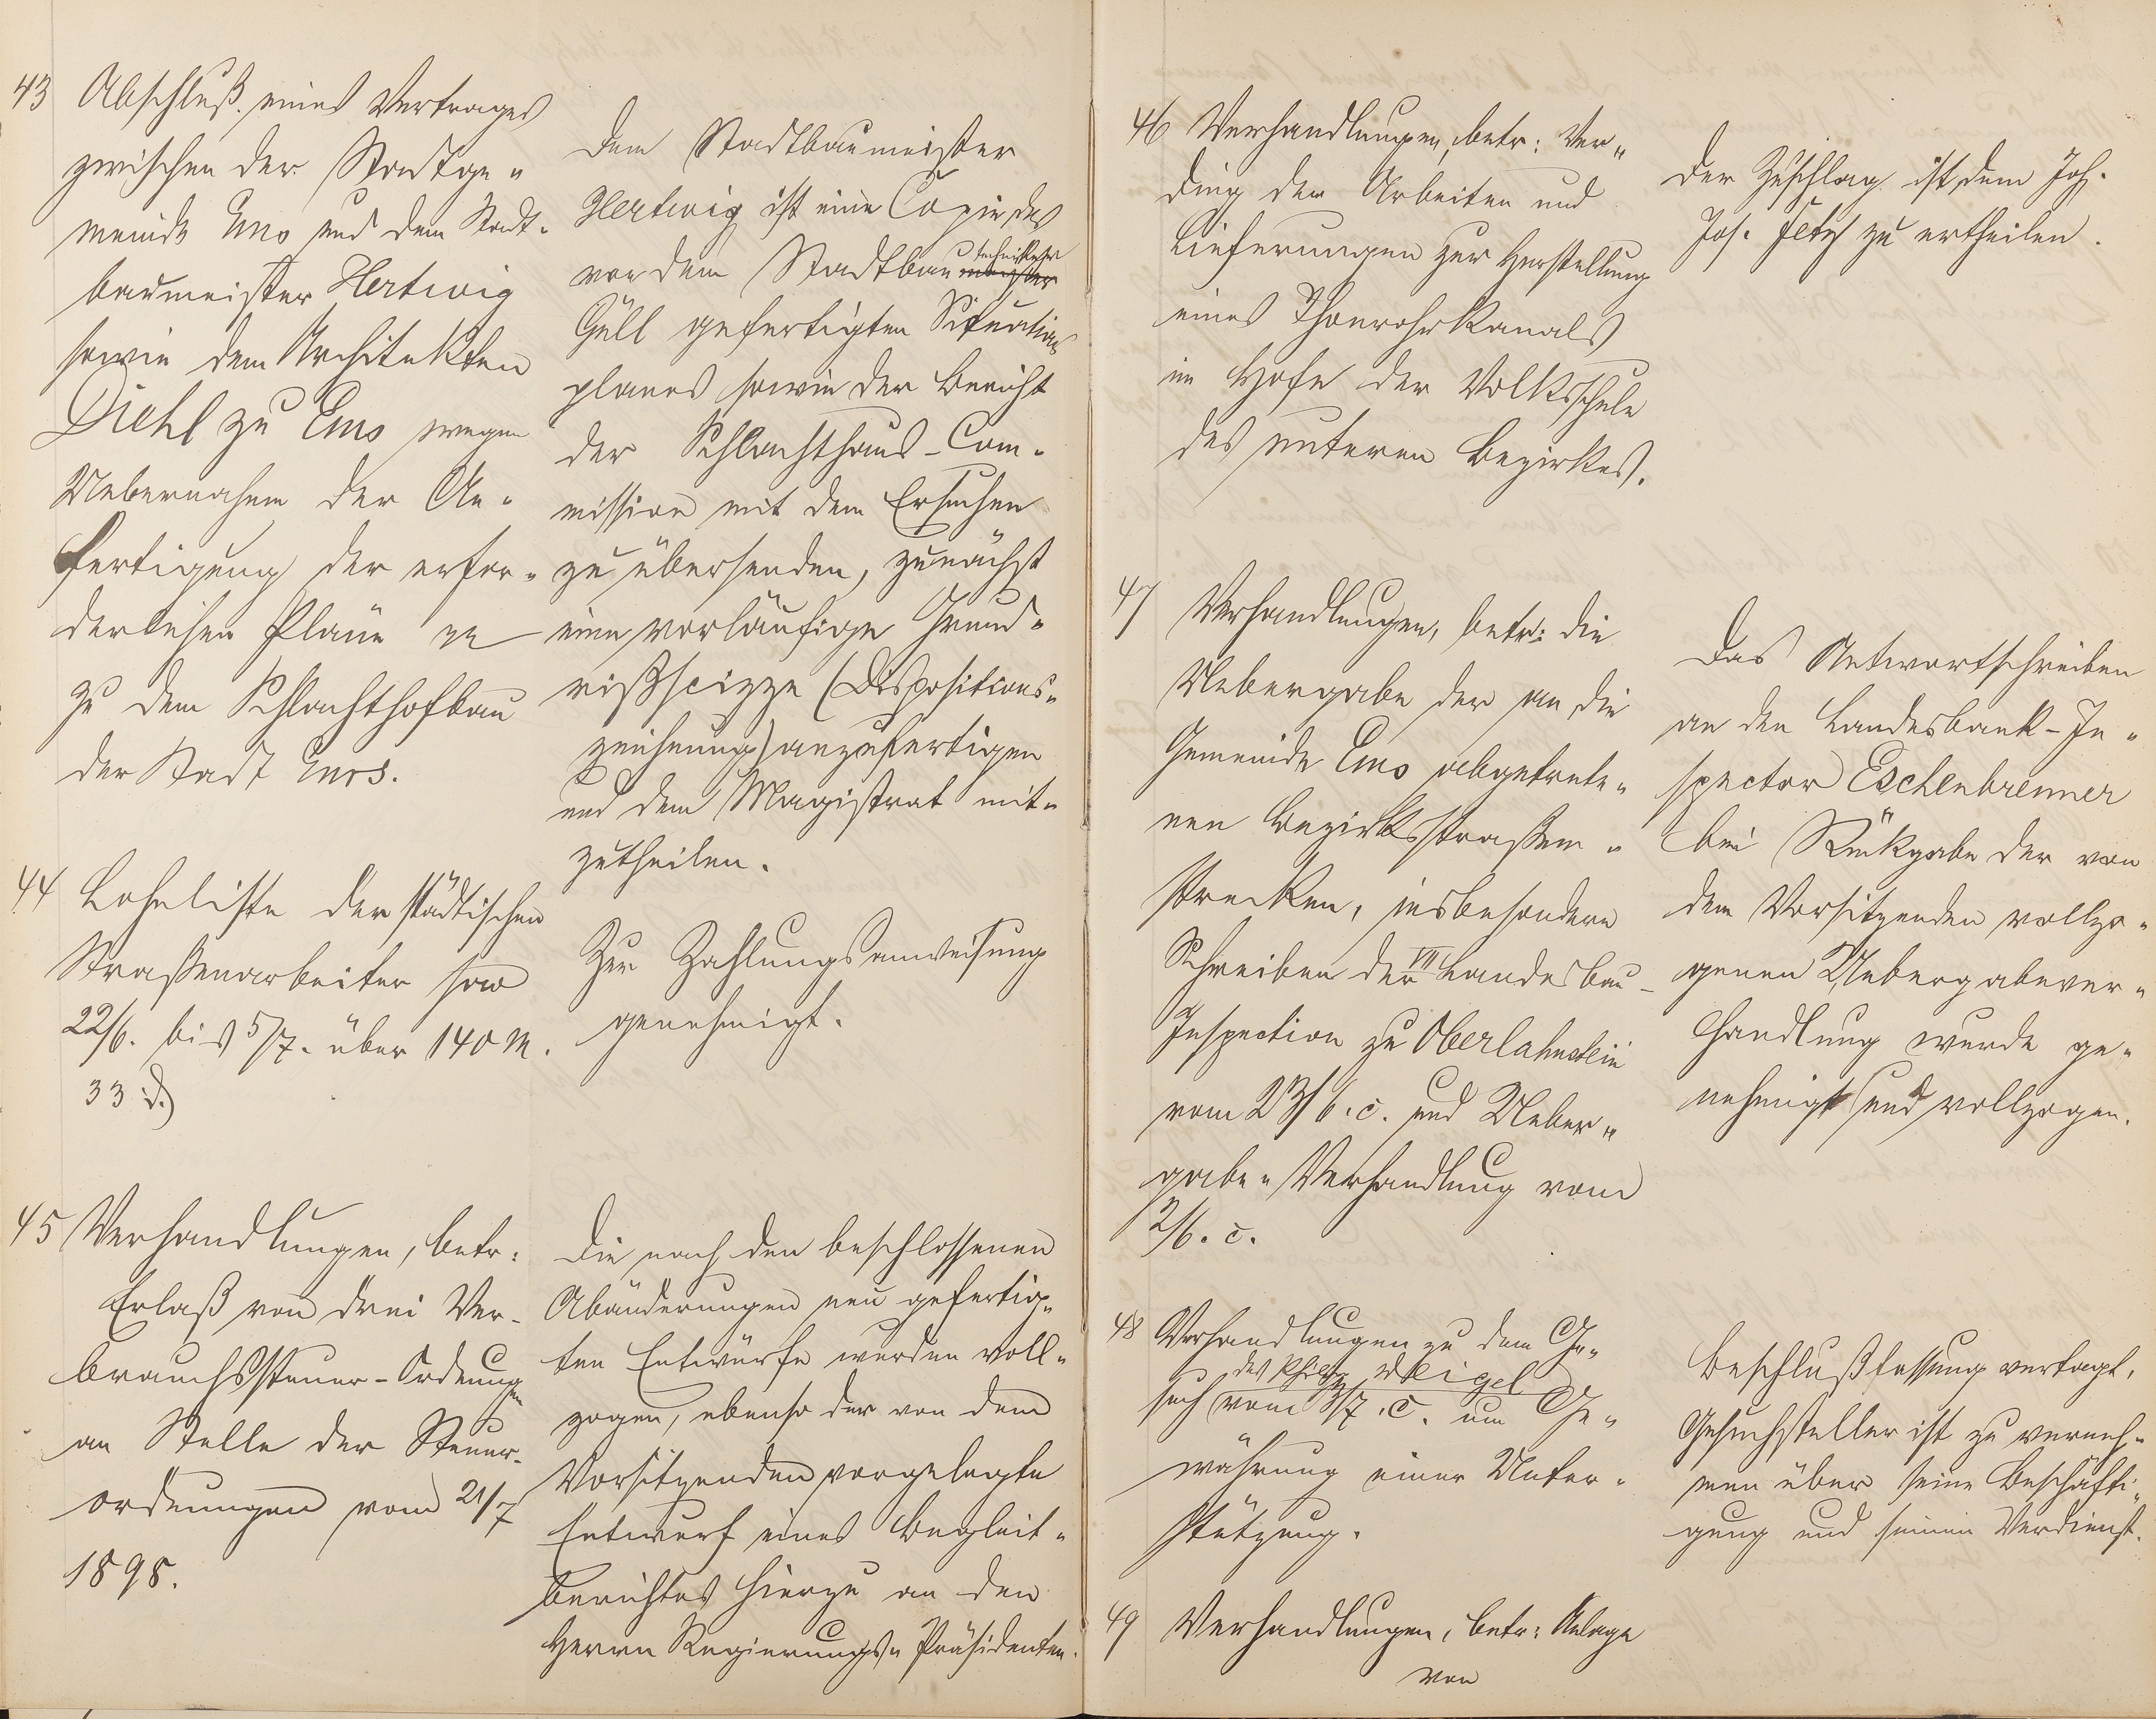 43 Abschluß eines Vertrages
zwischen der Stadtge„
meinde Ems und dem Stadt-
baumeister Hertwig
sowie dem Architekten
Diehl zu Ems wegen
Uebernahme der An„
fertigung der erfor„
derlichen Pläne pp
zu dem Schlachthofbau
der Stadt Ems.
Dem Stadtbaumeister
Hertwig ist eine Copie des
von dem Stadtbau meister techniker
Güll gefertigten Situations
planes sowie der Bericht
der Schlachthaus-Com-
mission mit dem Ersuchen
zu übersenden, zunächst
eine vorläufige Grund„
rißscizze (Dispositions„
zeichnung) anzufertigen
und dem Magistrat mit„
zutheilen.
44 Lohnliste der städtischen
Straßenarbeiter pro
22/6. bis 5/7. über 140 M.
33 d.)
Zur Zahlungsanweisung
genehmigt.
45 Verhandlungen, betr:
Erlaß von drei Ver-
brauchssteuer-Ordnungen
an Stelle der Steuer-
ordnungen vom 21/7
1895.
Die nach den beschlossenen
Abänderungen neu gefertig„
ten Entwürfe werden voll„
zogen, ebenso der von dem
Vorsitzenden vorgelegte
Entwurf eines Begleit„
berichtes hierzu an den
Herrn Regierungs„Präsidenten.
46 Verhandlungen, betr: Ver„
ding der Arbeiten und
Lieferungen zur Herstellung
eines Thonrohrkanals
im Hofe der Volksschule
des unteren Bezirkes.
Der Zuschlag ist dem Joh.
Jos. zu ertheilen.
47 Verhandlungen, betr: die
Uebergabe der an die
Gemeinde Ems abgetrete„
nen Bezirksstraßen„
strecken, insbesondere
Schreiben der VII Landesbau-
Inspection zu Oberlahnstein
vom 23/6. c. und Ueber„
gabe„Verhandlung vom
2/6. c.
Das Antwortschreiben
an den Landesbank-In„
spector Eschenbrenner
bei Rückgabe der von
dem Vorsitzenden vollzo„
genen Uebergabever„
handlung wurde ge„
nehmigt und vollzogen.
48 Verhandlungen zu dem Ge„
des Weigel
such vom 3/7. c. um Ge„
währung einer Unter„
stützung.
Beschlußfassung vertagt.
Gesuchsteller ist zu verneh„
men über seine Beschäfti„
gung und seinen Verdienst.
49 Verhandlungen, betr: Anlage
von